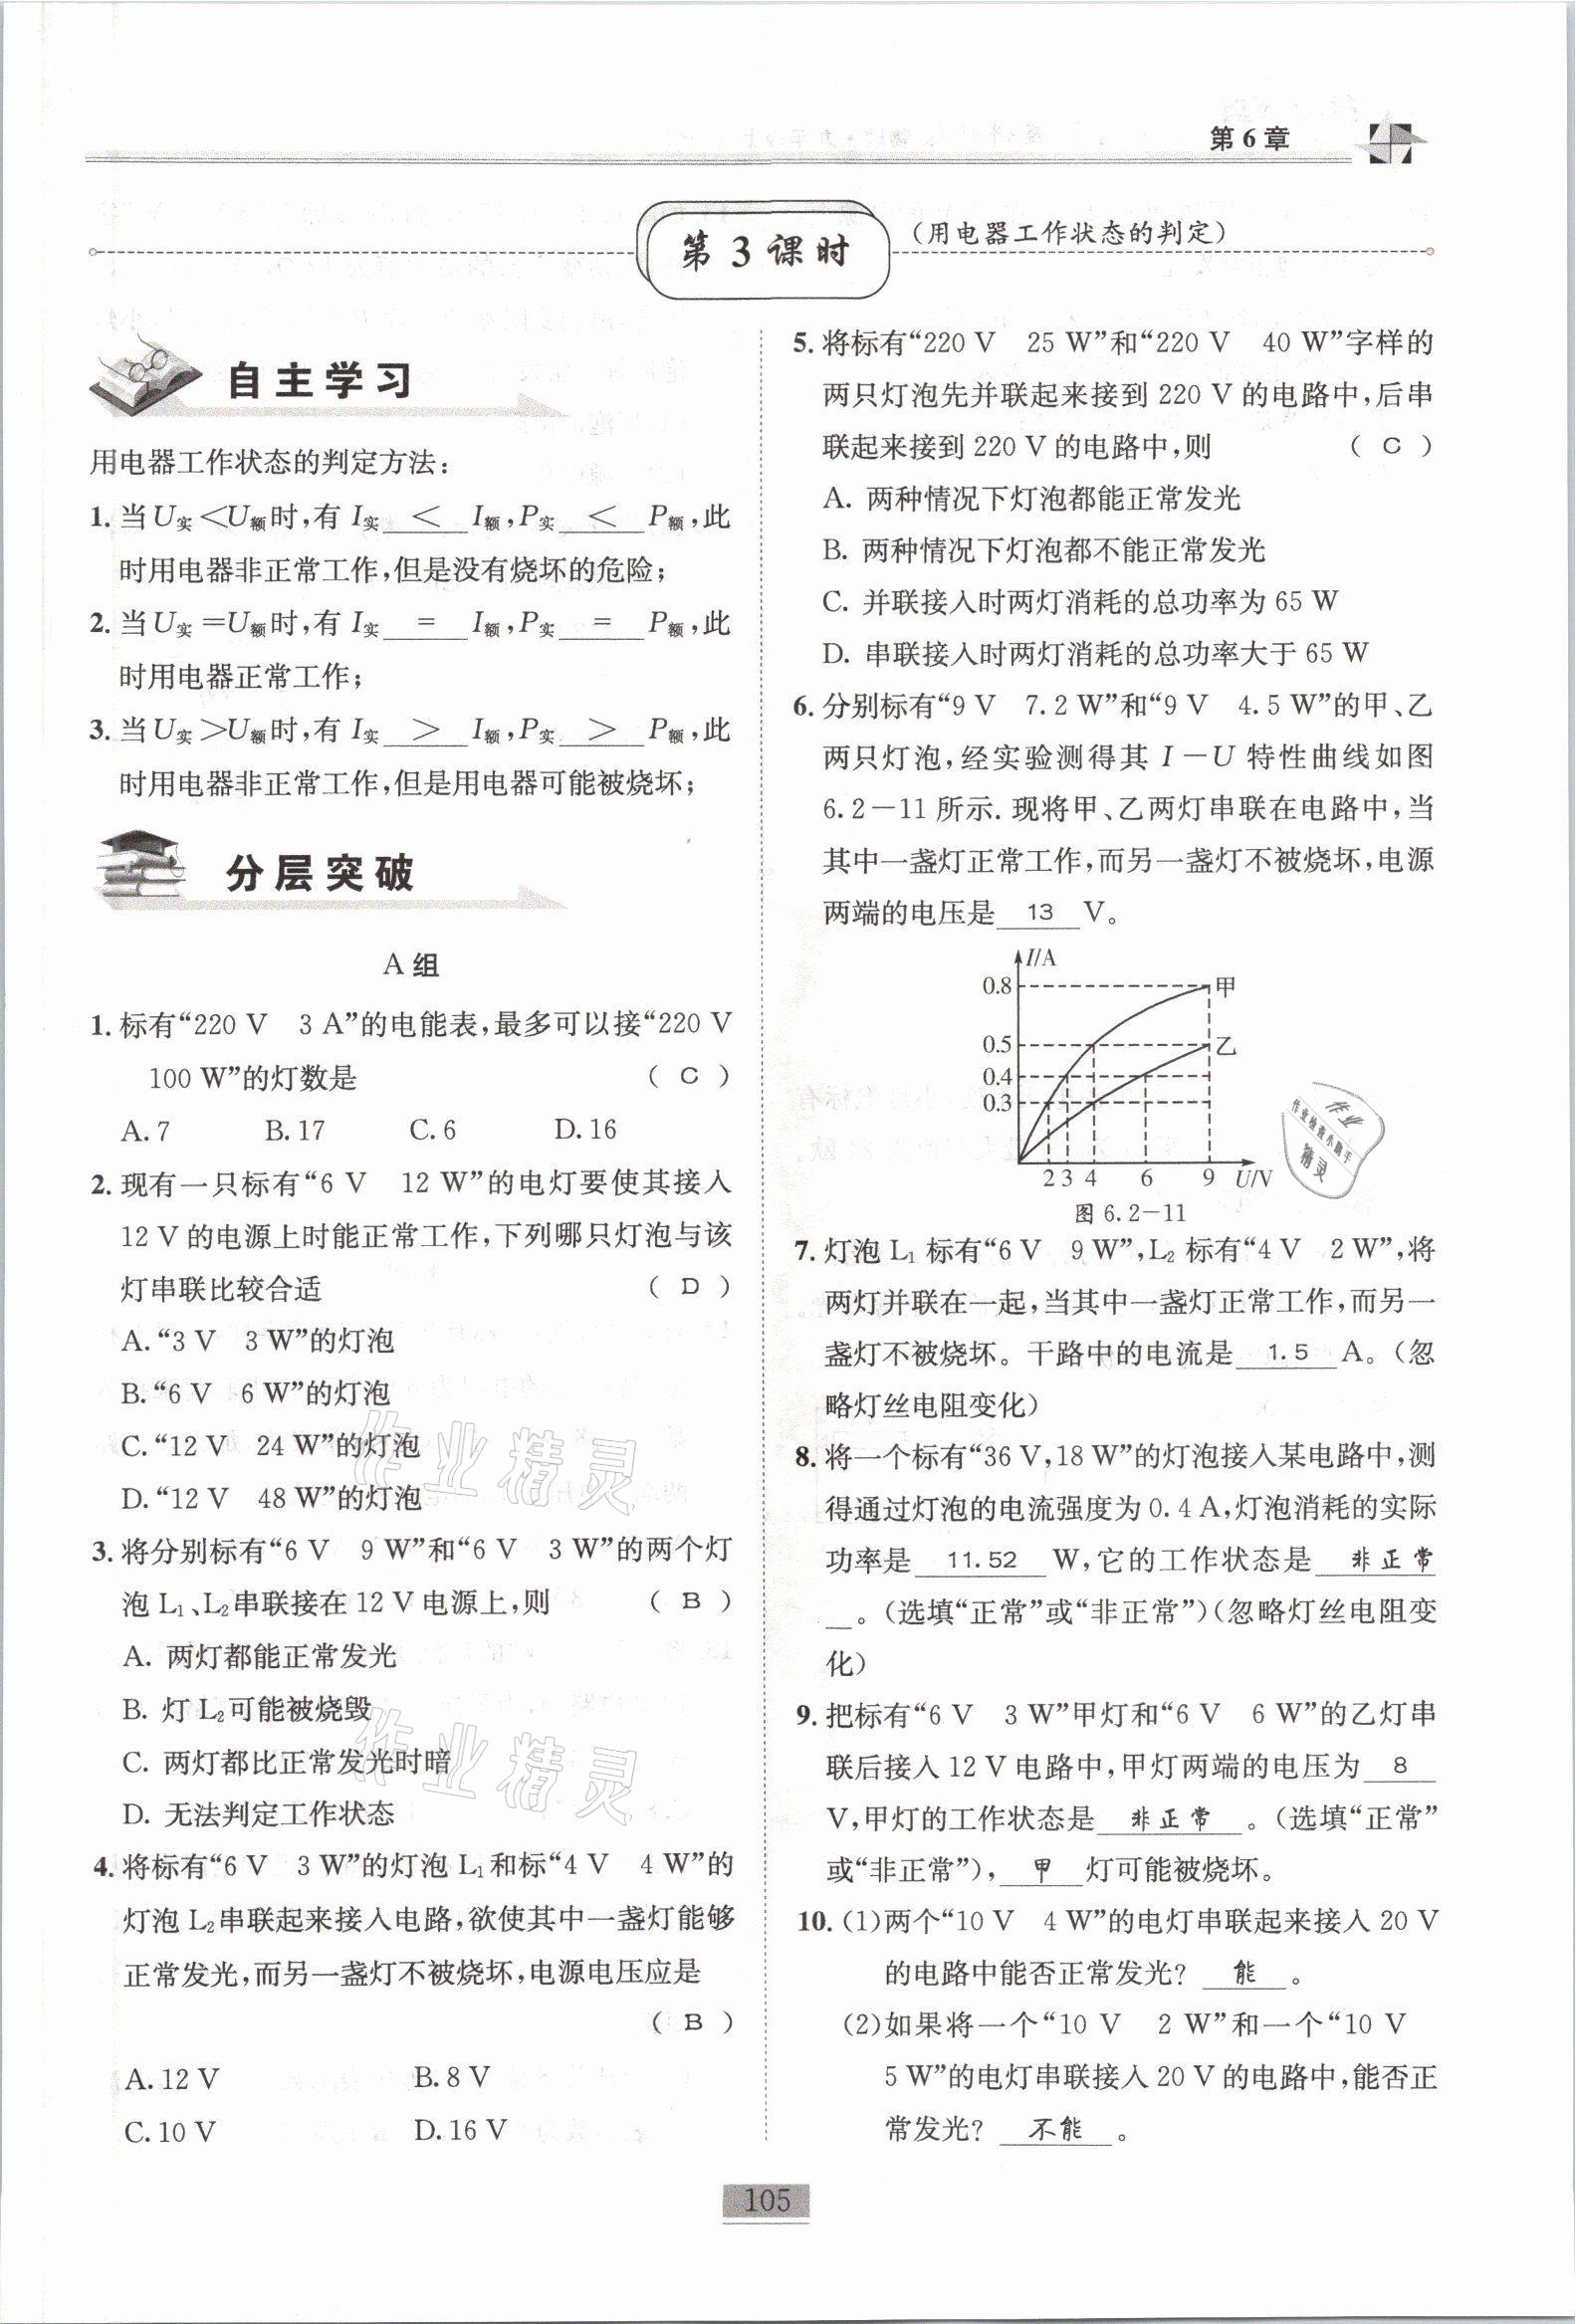 第6章
第3课时
(用电器工作状态的判定)
自主学习
用电器工作状态的判定方法:
1. 当U实<U额时,有I实 < I额,P实 < P额,此
时用电器非正常工作,但是没有烧坏的危险;
2. 当U实=U额时,有I实 = I额,P实 = P额,此
时用电器正常工作;
3. 当U实>U额时,有I实 > I额,P实 > P额,此
时用电器非正常工作,但是用电器可能被烧坏;
分层突破
A组
1. 标有“220 V 3 A”的电能表,最多可以接“220 V
100 W”的灯数是 ( C )
A. 7 B. 17 C. 6 D. 16
2. 现有一只标有“6 V 12 W”的电灯要使其接入
12 V的电源上时能正常工作,下列哪只灯泡与该
灯串联比较合适 ( D )
A. “3 V 3 W”的灯泡
B. “6 V 6 W”的灯泡
C. “12 V 24 W”的灯泡
D. “12 V 48 W”的灯泡
3. 将分别标有“6 V 9 W”和“6 V 3 W”的两个灯
泡L1、L2串联接在12 V电源上,则 ( B )
A. 两灯都能正常发光
B. 灯L2可能被烧毁
C. 两灯都比正常发光时暗
D. 无法判定工作状态
4. 将标有“6 V 3 W”的灯泡L1和标“4 V 4 W”的
灯泡L2串联起来接入电路,欲使其中一盏灯能够
正常发光,而另一盏灯不被烧坏,电源电压应是
( B )
A. 12 V B. 8 V
C. 10 V D. 16 V
5. 将标有“220 V 25 W”和“220 V 40 W”字样的
两只灯泡先并联起来接到220 V的电路中,后串
联起来接到220 V的电路中,则 ( C )
A. 两种情况下灯泡都能正常发光
B. 两种情况下灯泡都不能正常发光
C. 并联接入时两灯消耗的总功率为65 W
D. 串联接入时两灯消耗的总功率大于65 W
6. 分别标有“9 V 7.2 W”和“9 V 4.5 W”的甲、乙
两只灯泡,经实验测得其I-U特性曲线如图
6.2-11所示. 现将甲、乙两灯串联在电路中,当
其中一盏灯正常工作,而另一盏灯不被烧坏,电源
两端的电压是 13 V。
I/A
0.8 甲
0.5 乙
0.4
0.3
2 3 4 6 9 U/V
图6.2-11
7. 灯泡L1标有“6 V 9 W”,L2标有“4 V 2 W”,将
两灯并联在一起,当其中一盏灯正常工作,而另一
盏灯不被烧坏。干路中的电流是 1.5 A。(忽
略灯丝电阻变化)
8. 将一个标有“36 V,18 W”的灯泡接入某电路中,测
得通过灯泡的电流强度为0.4 A,灯泡消耗的实际
功率是 11.52 W,它的工作状态是 非正常
。(选填“正常”或“非正常”)(忽略灯丝电阻变
化)
9. 把标有“6 V 3 W”甲灯和“6 V 6 W”的乙灯串
联后接入12 V电路中,甲灯两端的电压为 8
V,甲灯的工作状态是 非正常 。(选填“正常”
或“非正常”), 甲 灯可能被烧坏。
10. (1)两个“10 V 4 W”的电灯串联起来接入20 V
的电路中能否正常发光? 能 。
(2)如果将一个“10 V 2 W”和一个“10 V
5 W”的电灯串联接入20 V的电路中,能否正
常发光? 不能 。
作业
作业检查小助手
精灵
作业精灵
作业精灵
105